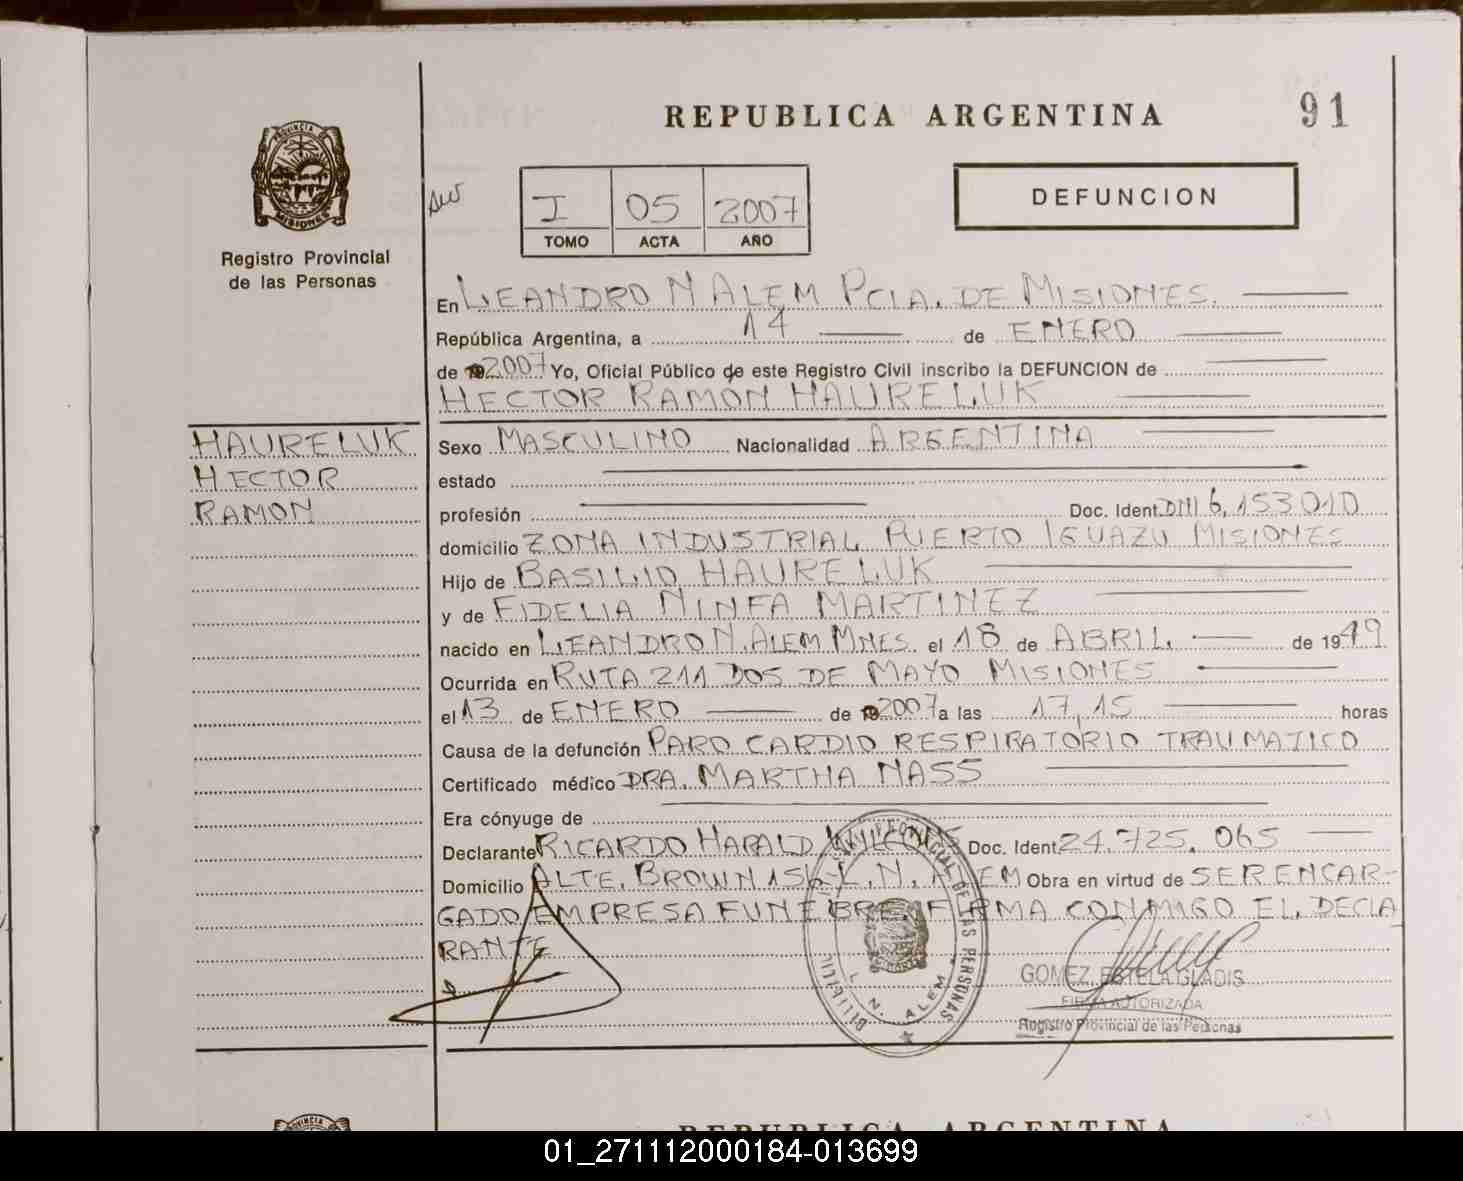 REPUBLICA ARGENTINA
91
PROVINCIA DE
MISIONES
Registro Provincial
de las Personas
I 05 2007
TOMO ACTA AÑO
DEFUNCION
En LEANDRO N ALEM PCIA. DE MISIONES.
República Argentina, a 14 de ENERO
de 2007 Yo, Oficial Público de este Registro Civil inscribo la DEFUNCION de
HECTOR RAMON HAURELUK
HAURELUK
HECTOR
RAMON
Sexo MASCULINO Nacionalidad ARGENTINA
estado
profesión Doc. Ident. DNI 6,153010
domicilio ZONA INDUSTRIAL PUERTO IGUAZU MISIONES
Hijo de BASILIO HAURELUK
y de FIDELIA NINFA MARTINEZ
nacido en LEANDRO N. ALEM MNES. el 18 de ABRIL de 1949
Ocurrida en RUTA 211 DOS DE MAYO MISIONES
el 13 de ENERO de 2007 a las 17,15 horas
Causa de la defunción PARO CARDIO RESPIRATORIO TRAUMATICO
Certificado médico DRA. MARTHA NASS
Era cónyuge de
Declarante RICARDO HARALD Doc. Ident. 24.725.065
Domicilio ALTE. BROWN L.N. ALEM Obra en virtud de SER ENCAR-
GADO EMPRESA FUNEBRE. FIRMA CONMIGO EL DECLA
RANTE
PROVINCIAL DE LAS PERSONAS
L. N. ALEM
GOMEZ, ESTELA GLADIS
FIRMA AUTORIZADA
Registro Provincial de las Personas
PROVINCIA
REPUBLICA ARGENTINA
01_271112000184-013699